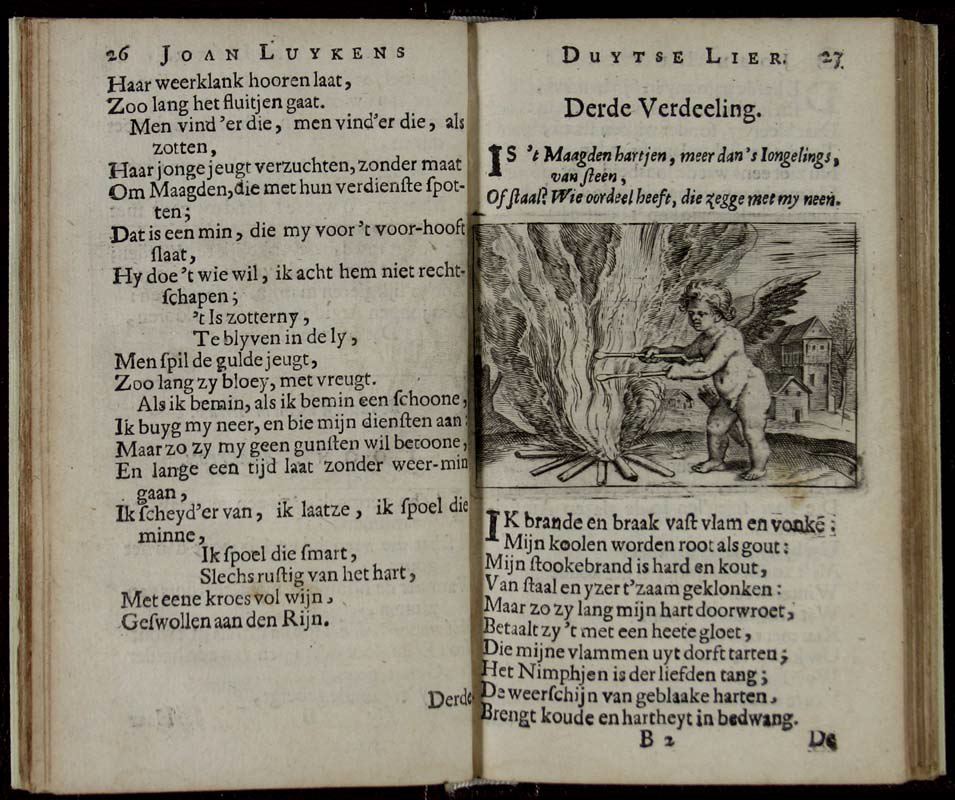 26 JOAN LUYKENS
Haar weerklank hooren laat,
Zoo lang het fluitjen gaat.
Men vind 'er die, men vind'er die, als
zotten,
Haar jonge jeugt verzuchten, zonder maat
Om Maagden, die met hun verdienſte ſpot-
ten;
Dat is een min, die my voor 't voor-hooft
ſlaat,
Hy doe 't wie wil, ik acht hem niet recht-
ſchapen;
't Is zotterny,
Te blyven in de ly,
Men ſpil de gulde jeugt,
Zoo lang zy bloey, met vreugt.
Als ik bemin, als ik bemin een ſchoone,
Ik buyg my neer, en bie mijn dienſten aan:
Maar zo zy my geen gunſten wil betoone,
En lange een tijd laat zonder weer-min
gaan,
Ik ſcheyd'er van, ik laatze, ik ſpoel die
minne,
Ik ſpoel die ſmart,
Slechs ruſtig van het hart,
Met eene kroes vol wijn,
Geſwollen aan den Rijn.
Derde
DUYTSE LIER. 27
Derde Verdeeling.
IS 't Maagden hartjen, meer dan 's Iongelings,
van ſteen,
Of ſtaal? Wie oordeel heeft, die zegge met my neen.
IK brande en braak vaſt vlam en vonkē:
Mijn koolen worden root als gout:
Mijn ſtookebrand is hard en kout,
Van ſtaal en yzer t'zaam geklonken:
Maar zo zy lang mijn hart doorwroet,
Betaalt zy 't met een heete gloet,
Die mijne vlammen uyt dorft tarten;
Het Nimphjen is der liefden tang;
De weerſchijn van geblaake harten,
Brengt koude en hartheyt in bedwang.
B 2 De